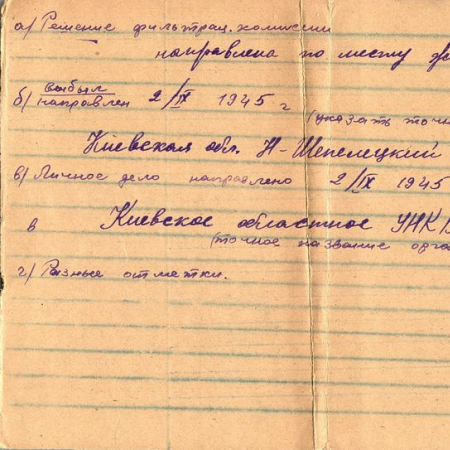 а) Решение фильтрац. комиссии
направлена по месту
выбыл
б) направлен 2/IX 1945 г
(указать точн
Киевская обл. Н-Шепелецкий
в) Личное дело направлено 2/IX 1945
в Киевское областное УНКВ
(точное название орга
г) Разные отметки.